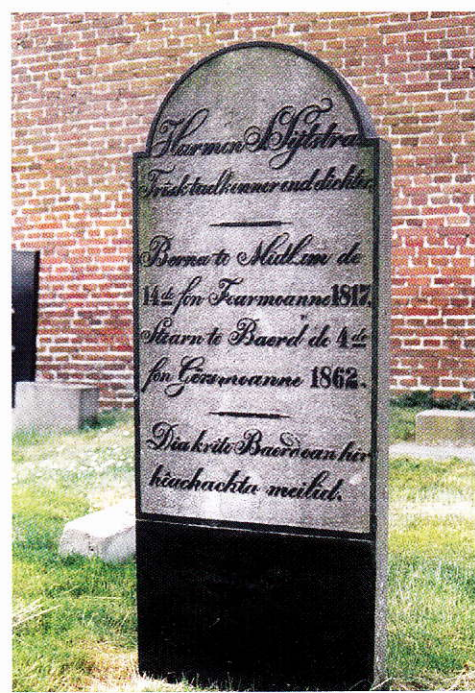 Harmen S. Sijtstra
Friesk taelkenner end dichter.
Berne to Midlum de
14de fen Foarmoanne 1817.
Stoarn to Baerd de 4de
fen Gêrsmoanne 1862.
Dia krite Baerd oan hir
heachachta meilid.